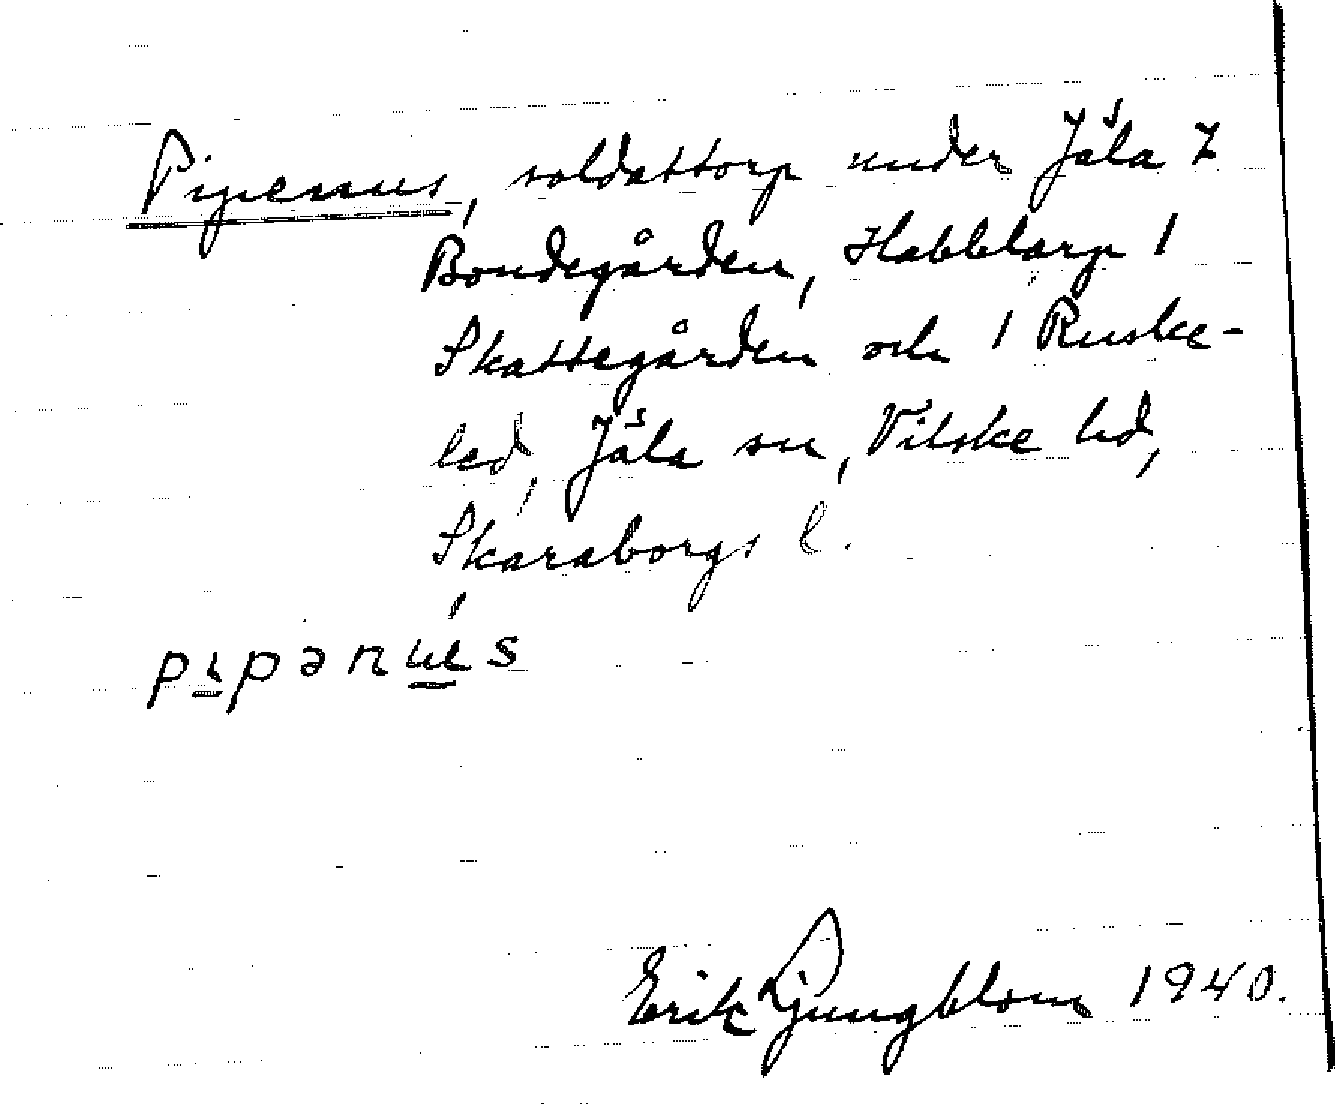 Pipenus, soldattorp under Jäla 2
Bondegården, Habblarp 1
Skattegården och 1 Ruske-
led, Jäla sn, Vilske hd,
Skaraborgs l.
pɩpənus
Erik Ljungblom 1940.